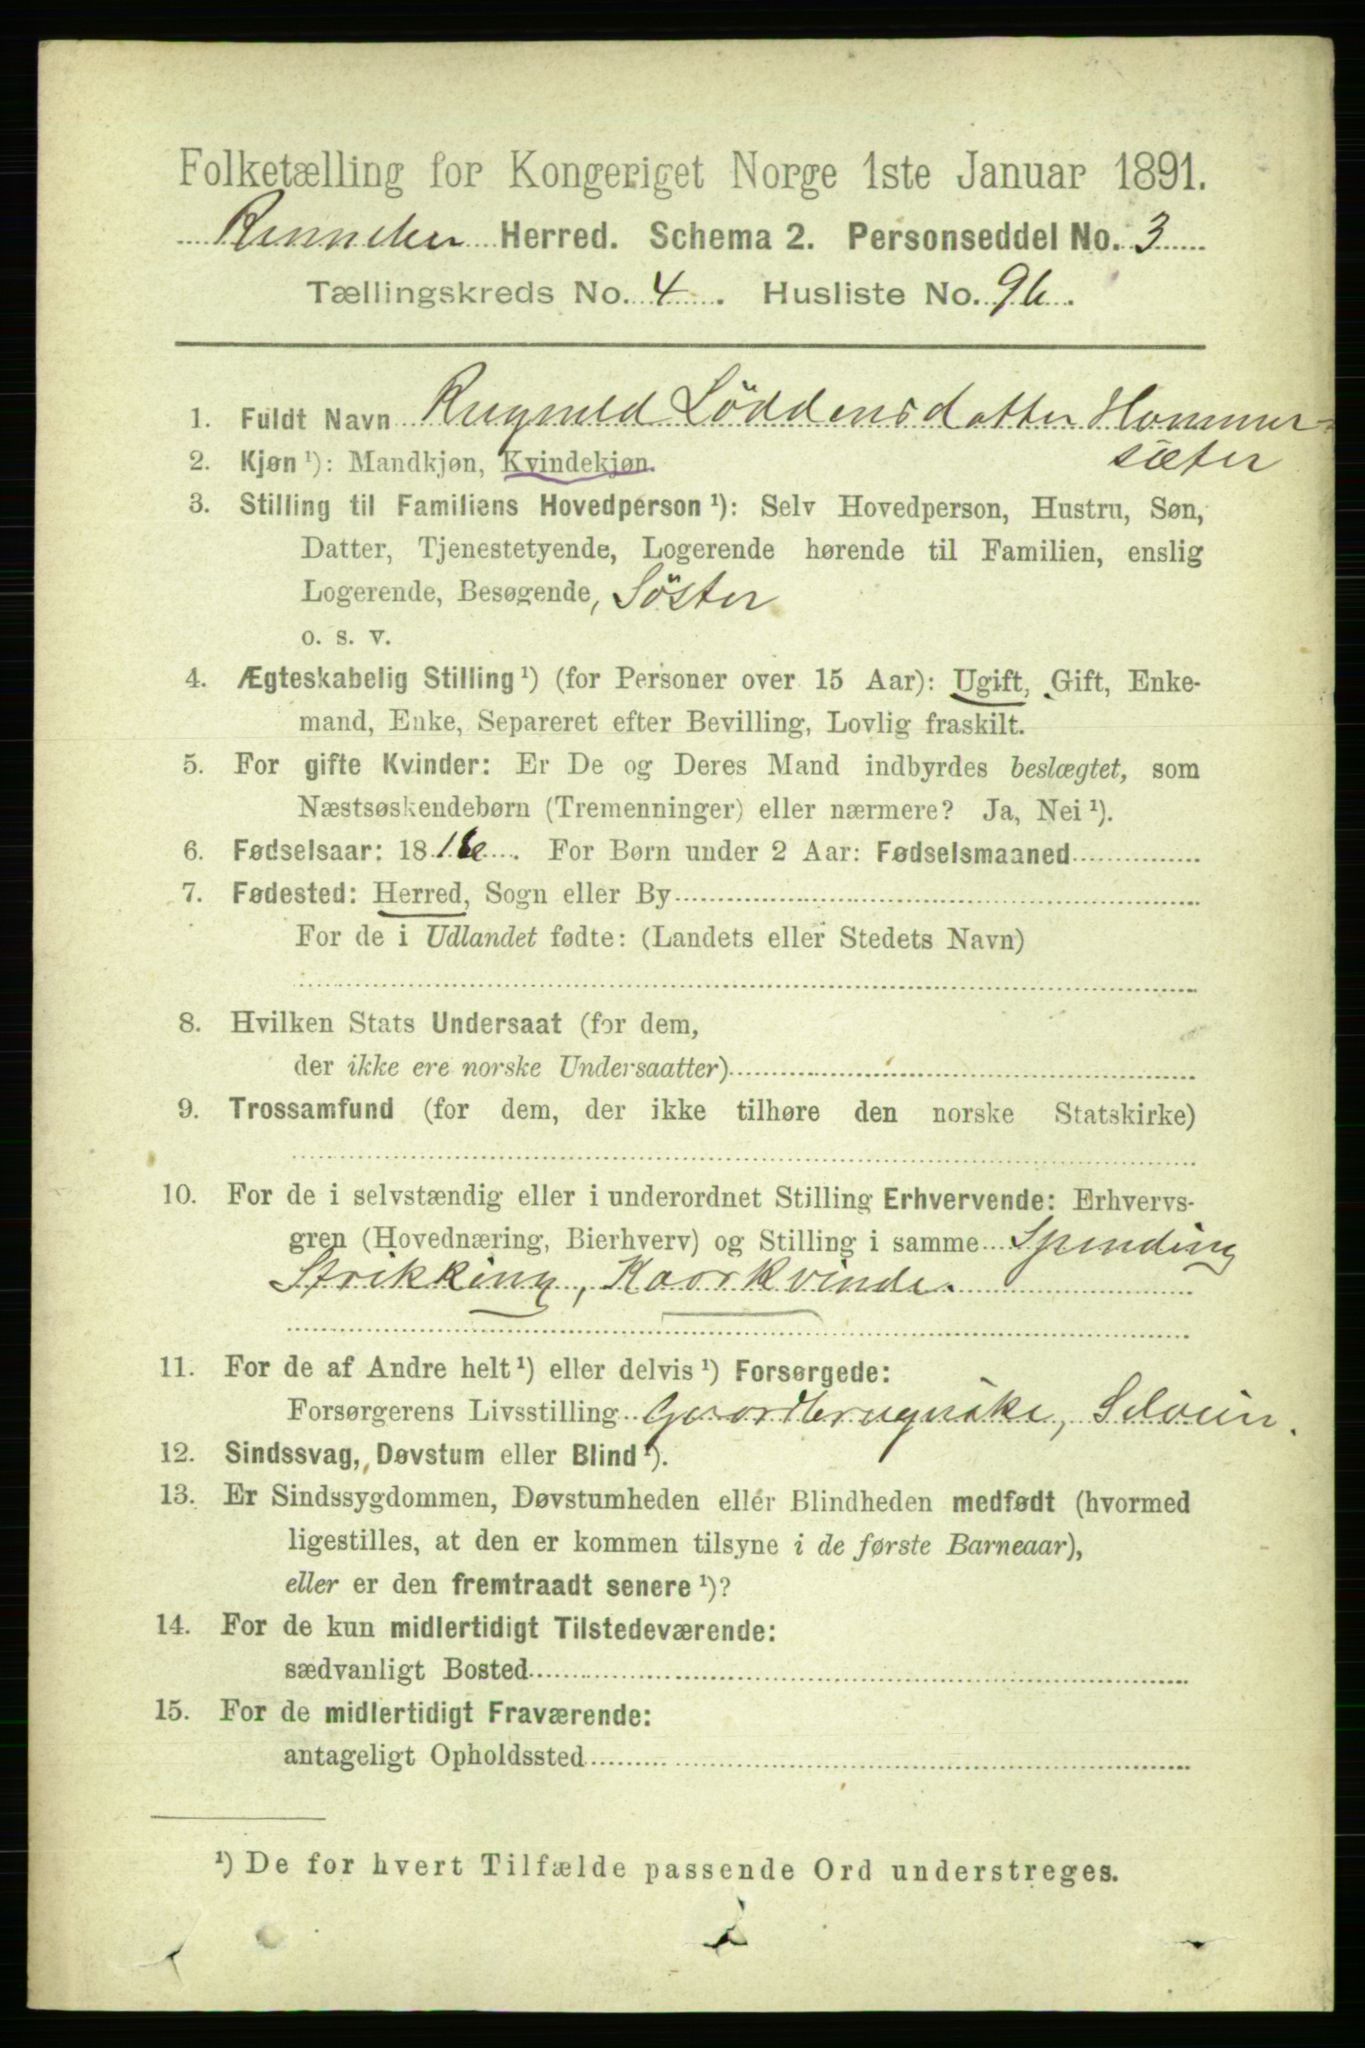 Folketælling for Kongeriget Norge 1ste Januar 1891.
Rennebu Herred. Schema 2. Personseddel No. 3
Tællingskreds No. 4. Husliste No. 96.
1. Fuldt Navn Ragnild Löddensdatter Hammer-
sæter
2. Kjøn ¹): Mandkjøn, Kvindekjøn.
3. Stilling til Familiens Hovedperson ¹): Selv Hovedperson, Hustru, Søn,
Datter, Tjenestetyende, Logerende hørende til Familien, enslig
Logerende, Besøgende, Söster
o. s. v.
4. Ægteskabelig Stilling ¹) (for Personer over 15 Aar): Ugift, Gift, Enke-
mand, Enke, Separeret efter Bevilling, Lovlig fraskilt.
5. For gifte Kvinder: Er De og Deres Mand indbyrdes beslægtet, som
Næstsøskendebørn (Tremenninger) eller nærmere? Ja, Nei ¹).
6. Fødselsaar: 18 . For Børn under 2 Aar: Fødselsmaaned
7. Fødested: Herred, Sogn eller By
For de i Udlandet fødte: (Landets eller Stedets Navn)
8. Hvilken Stats Undersaat (for dem,
der ikke ere norske Undersaatter)
9. Trossamfund (for dem, der ikke tilhøre den norske Statskirke)
10. For de i selvstændig eller i underordnet Stilling Erhvervende: Erhvervs-
gren (Hovednæring, Bierhverv) og Stilling i samme Spinding
Strikking, Kaarkvinde.
11. For de af Andre helt ¹) eller delvis ¹) Forsørgede:
Forsørgerens Livsstilling Gaardbrugerske, Selveier.
12. Sindssvag, Døvstum eller Blind ¹).
13. Er Sindssygdommen, Døvstumheden eller Blindheden medfødt (hvormed
ligestilles, at den er kommen tilsyne i de første Barneaar),
eller er den fremtraadt senere ¹)?
14. For de kun midlertidigt Tilstedeværende:
sædvanligt Bosted
15. For de midlertidigt Fraværende:
antageligt Opholdssted
¹) De for hvert Tilfælde passende Ord understreges.